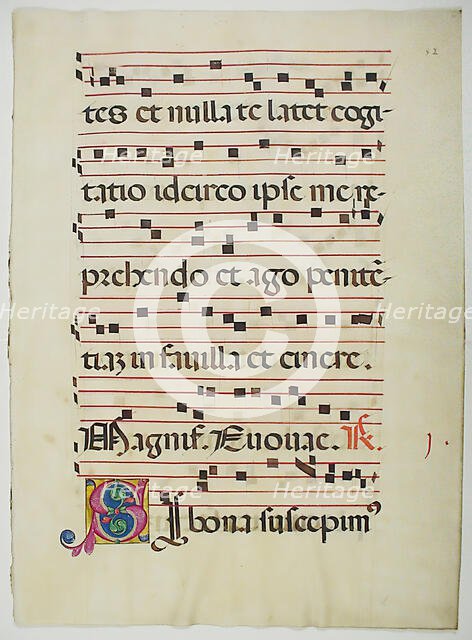 52
tes et nulla te latet cogi-
tatio idcirco ipse me re-
prehendo et ago penitē-
tiaz in favilla et cinere.
Magnif. Euouae. ℟.
Si bona suscepimꝰ
Heritage
Heritage
Heritage
Heritage
Heritage
Heritage
Heritage
Heritage